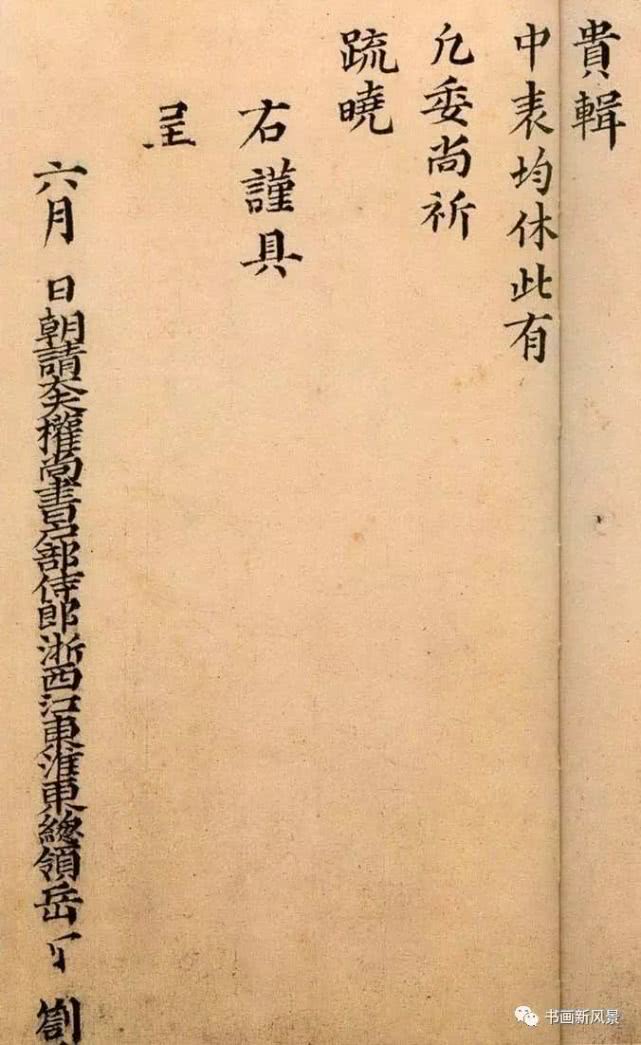 貴輯
中表均休此有
凢委尚祈
疏曉
右謹具
呈
六月 日朝請大夫權尚書户部侍郎浙西江東淮東總領岳 劄
书画新风景